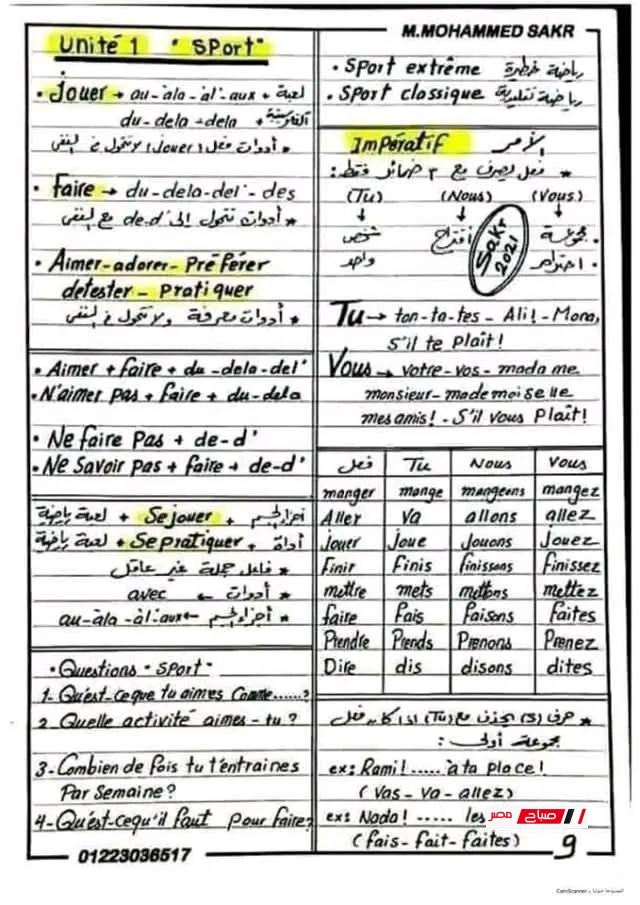 M.MOHAMMED SAKR
Unité 1 "SPort"
• Jouer → au-àla-àl'-aux + لعبة
du-dela-dela +
* أدوات فعل (Jouer) لا تتحول فى النفى
• Faire → du-dela-del'-des
* أدوات تتحول إلى de-d' مع النفى
• Aimer-adorer-Préférer
détester-Pratiquer
* أدوات معرفة ولا تتحول فى النفى
• Aimer + faire + du-dela-del'
• N'aimer pas + faire + du-dela
• Ne faire Pas + de-d'
• Ne Savoir pas + faire + de-d'
لعبة رياضية + Se jouer + أجزاء الجسم
لعبة رياضية + Se pratiquer + أداة
* فاعل جملة غير عاقل
* أدوات ← avec
* أجزاء الجسم ← au-àla-àl'-aux
• Questions "SPort"
1- Qu'est-ce que tu aimes Comme......?
2- Quelle activité aimes-tu?
3- Combien de fois tu t'entraines
Par Semaine?
4- Qu'est-cequ'il faut pour faire?
• SPort extrême رياضة خطيرة
• SPort classique رياضة تقليدية
ImPératif الأمر
* فعل يصرف مع ٣ ضمائر فقط:
(Tu) (Nous) (Vous)
شخص واحد
اقتراح
• مجموعة
• احترام
Sakr
2021
Tu → ton-ta-tes-Ali!-Mona,
S'il te plaît!
Vous → votre-vos-madame
monsieur-mademoiselle
mes amis!-S'il vous Plaît!
فعل Tu Nous Vous
manger mange mangeons mangez
Aller va allons allez
jouer joue Jouons Jouez
Finir Finis finissons finissez
mettre mets mettons mettez
faire fais faisons faites
Prendre Prends Prenons Prenez
Dire dis disons dites
* حرف (S) يحذف مع (Tu) إذا كان فعل
مجموعة أولى:
ex: Rami!.....à ta place!
(Vas-va-allez)
ex: Nada!...... les
(fais-fait-faites)
صباح مصر
9
01223036517
CamScanner